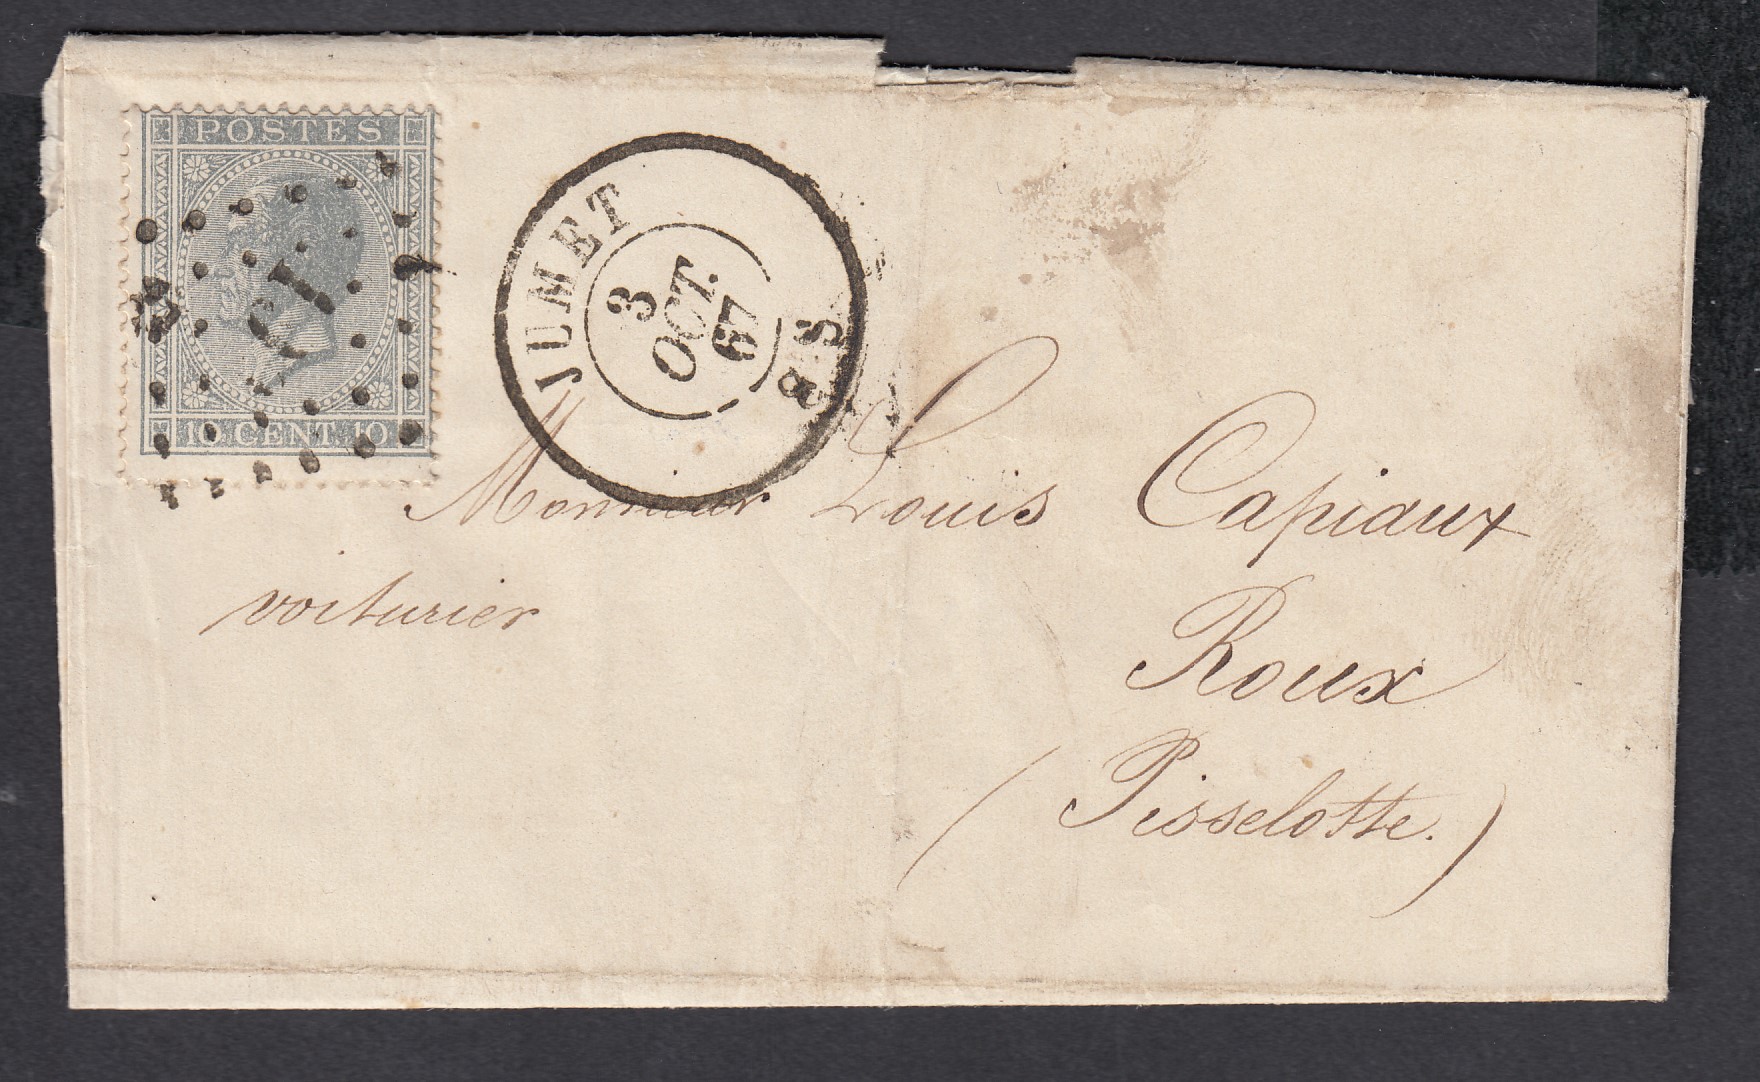 POSTES
10 CENT. 10
JUMET
3
OCT.
67
8 S
Monsieur Louis Capiaux
voiturier
Roux
(Pisselotte.)